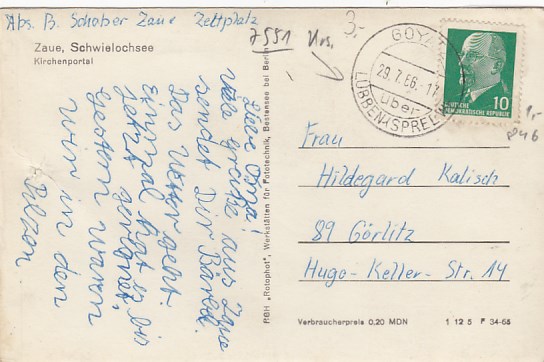 Abs. B. Schober Zaue Zeltplatz
Zaue, Schwielochsee
Kirchenportal
7551
3,-
Liebe Oma!
Viele Grüße aus Zaue
sendet Dir Bärbel.
Das Wetter geht.
Einmal hat es bis
jetzt geregnet,
Gestern waren
wir in den
Pilzen
RBH „Rotophot", Werkstätten für Fototechnik, Bestensee bei Berlin
GOYATZ
29.7.66.-17
über
LÜBBEN (SPREEW)
DEUTSCHE
DEMOKRATISCHE REPUBLIK
10
Frau
Hildegard Kalisch
89 Görlitz
Hugo-Keller-Str. 14
Verbraucherpreis 0,20 MDN
1 12 5 P 34-65